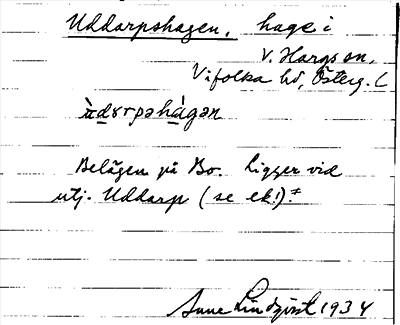 Uddarpshagen, hage i
V. Hargs sn,
Vifolka hd, Österg. L
Belägen på Bo. Ligger vid
utj. Uddarp (se ek!).
Sune Lindqvist 1934